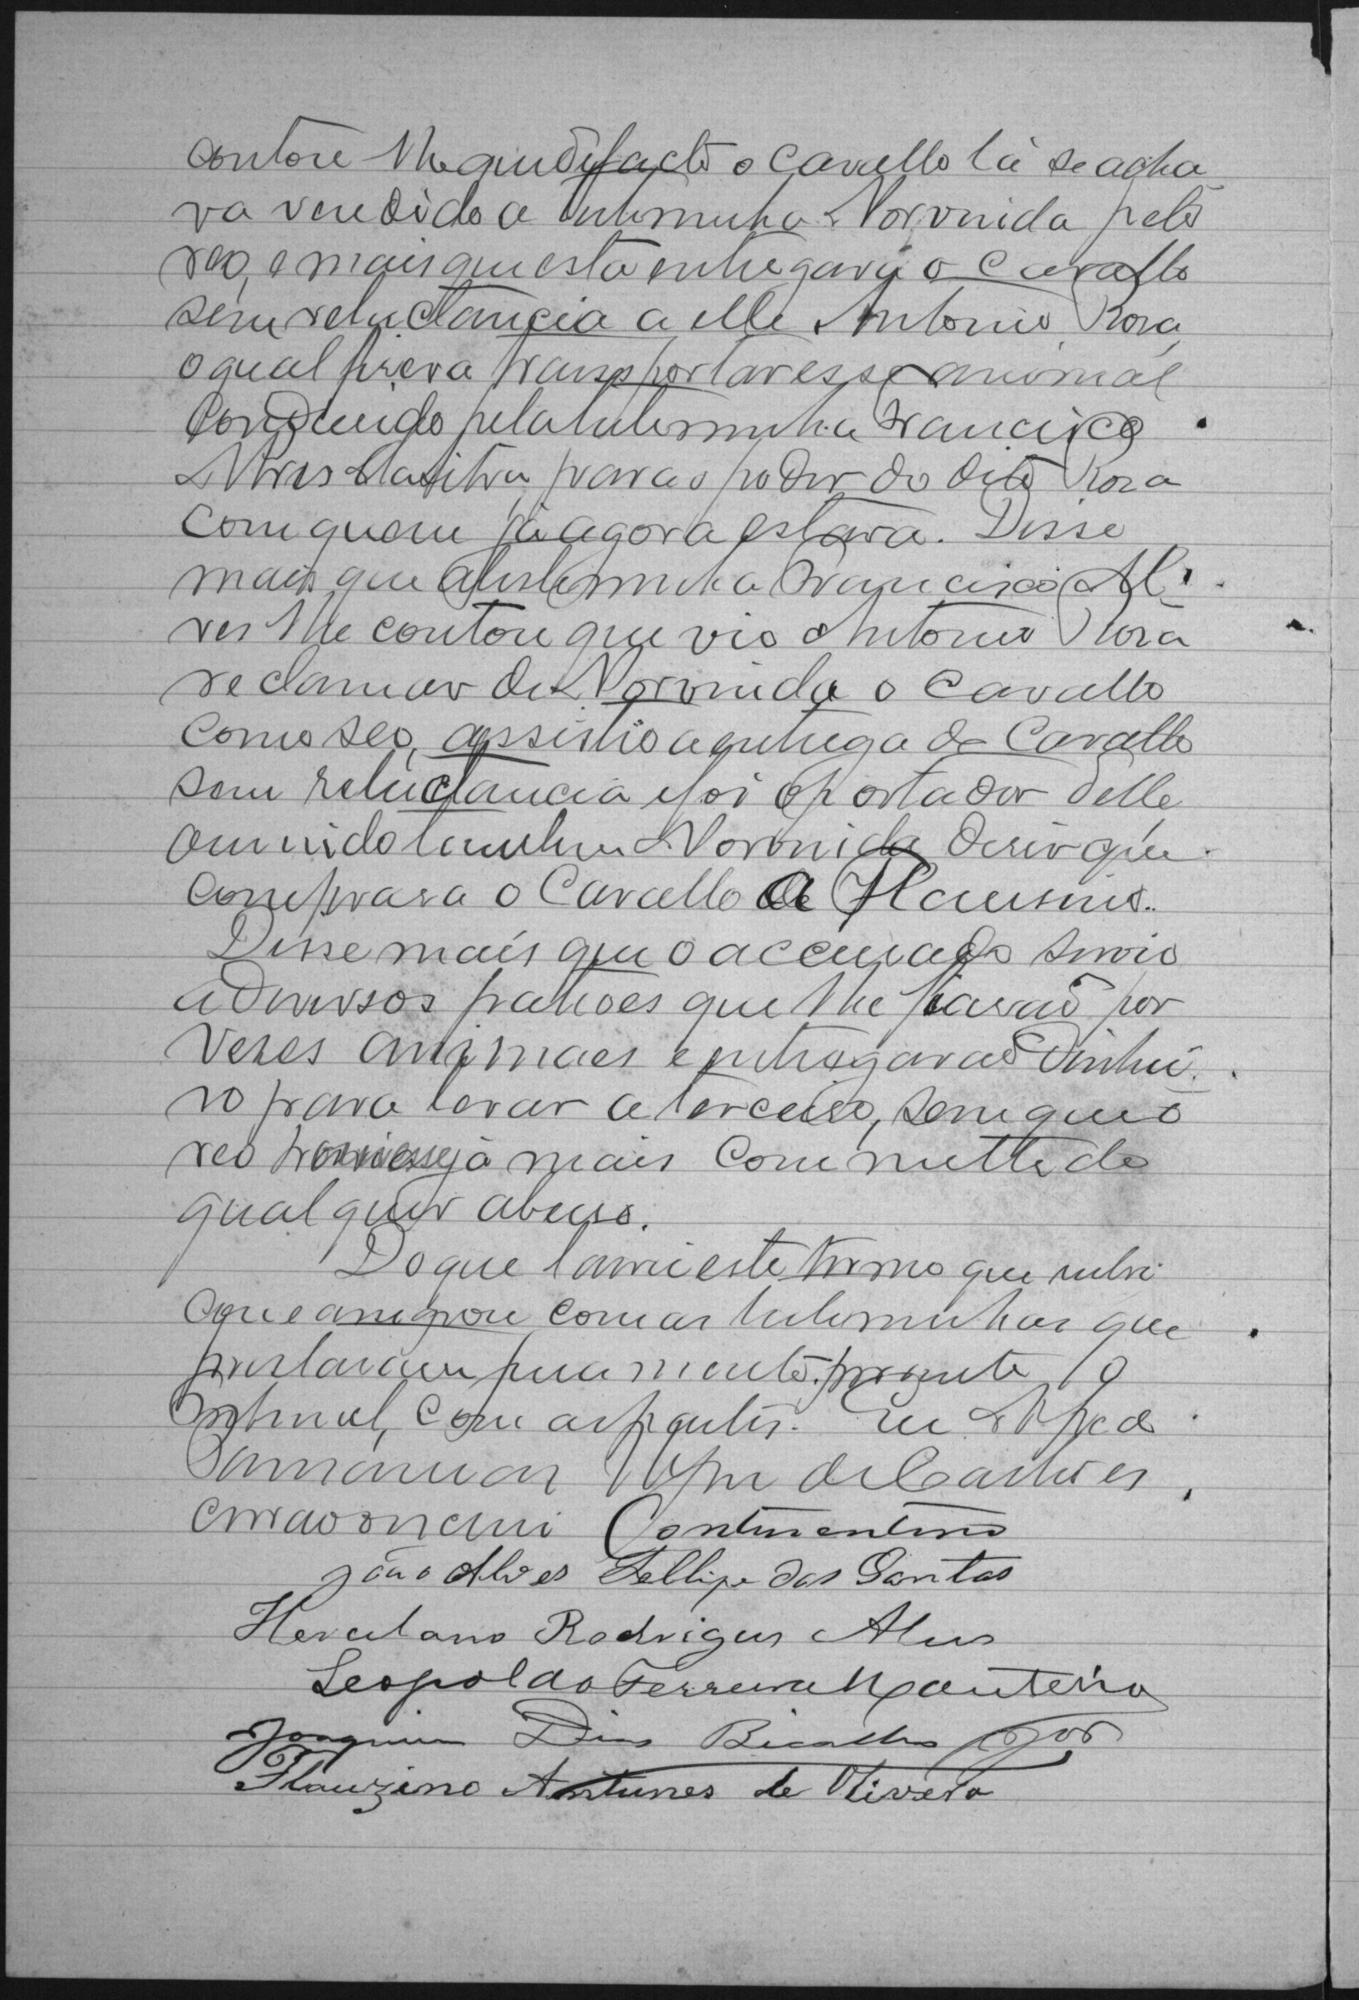 contou lhe que de facto o cavallo lá se acha
va vendido a testemunha Norvinda pelo
reo, e mais que esta entregara o cavallo
sem reluctancia a elle Antonio Rosa,
o qual fizera transportar esse animal
conduzido pela testemunha Francisco
Alves da Silva, para o poder do dito Rosa
com quem já agora estava. Disse
mais que a testemunha Francisco Al
ves lhe contou que vio Antonio Rosa
reclamar de Norvinda o cavallo
como seo, assistio a entrega do Cavallo
sem reluctancia e foi o portador delle
ouvindo tambem Norvinda dizer que
comprara o Cavallo a Flausino.
Disse mais que o accusado servio
a diversos patrões que lhe fiavão por
vezes animaes e entregavão dinhei
ro para levar a terceiro, sem que o
reo houvesse já mais commettido
qualquer abuso.
Do que lavrei este termo que rubri
que e assignou com as testemunhas que
prestaram juramento, presente o
tribunal, com as partes. Eu
de Castro es
crivão o escrevi Continentino
João Alves Fellipe dos Santos
Herculano Rodrigues Alves
Leopoldo Ferreira Monteiro
Joaquim Dias Bicalho Jor
Flauzino Antunes de Olivera